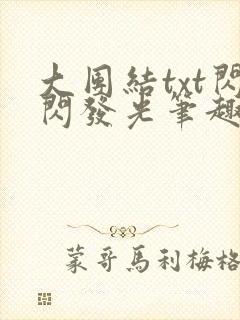 大團結txt閃
閃發光筆趣
蒙哥馬利梅格